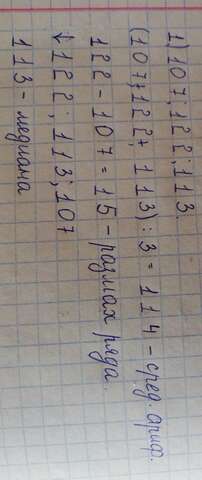 1) 107; 122; 113.
(107+122+113):3=114-сред. ариф.
122-107=15-размах ряда.
↓122; 113; 107
113-медиана